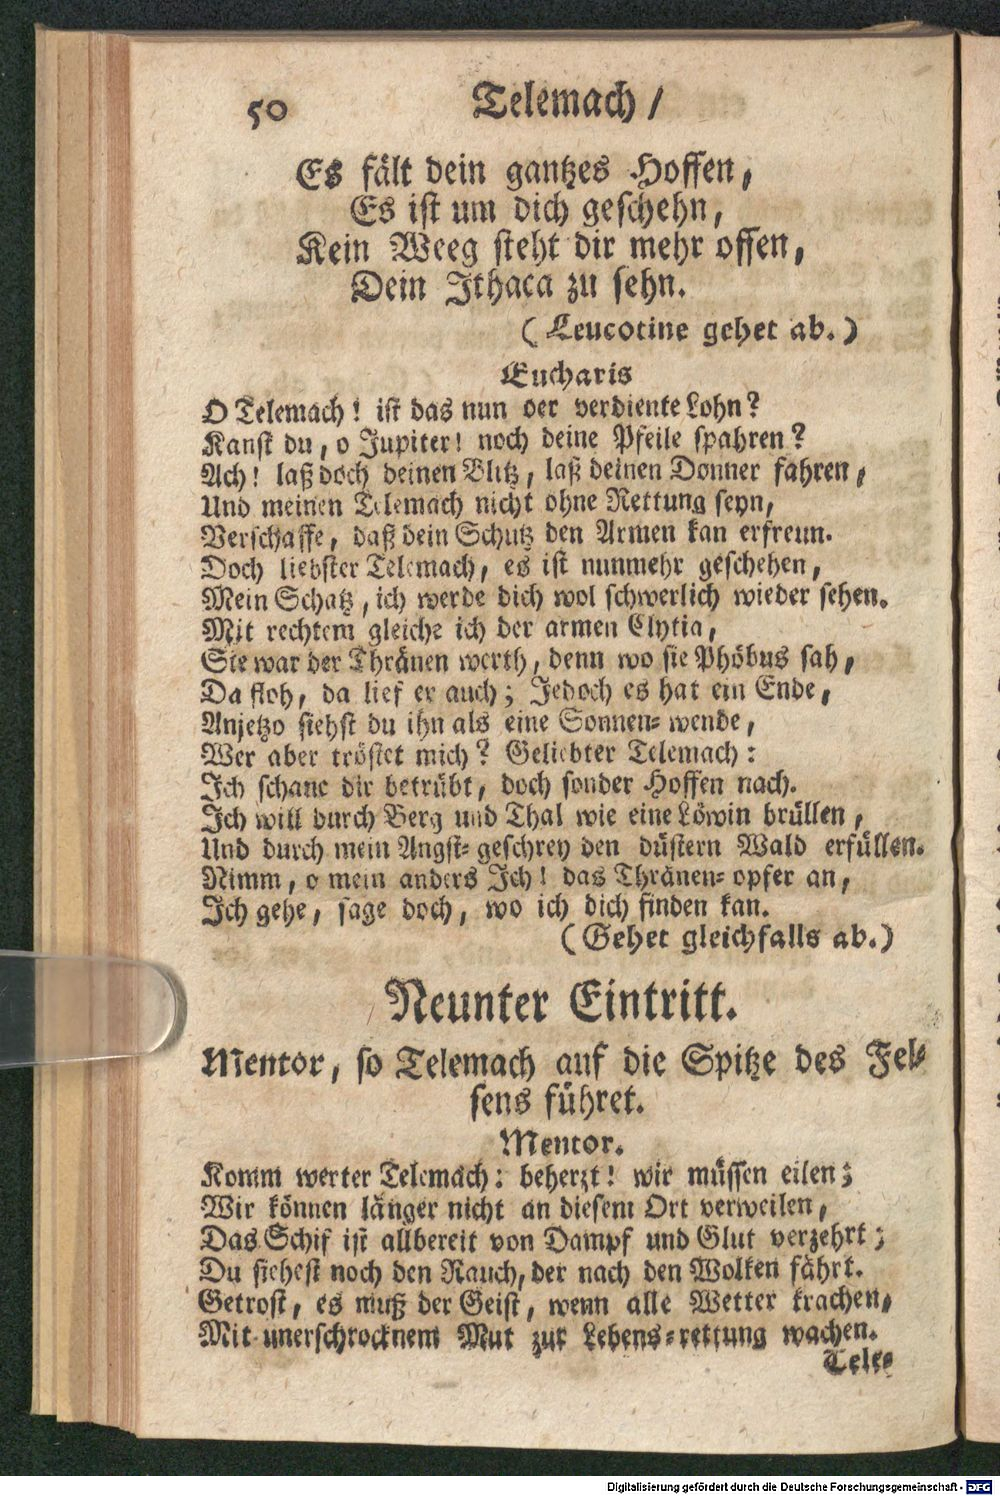 50
Telemach /
Es fält dein gantzes Hoffen,
Es ist um dich geschehn,
Kein Weeg steht dir mehr offen,
Dein Ithaca zu sehn.
(Leucotine gehet ab.)
Eucharis
O Telemach! ist das nun der verdiente Lohn?
Kanst du, o Jupiter! noch deine Pfeile spahren?
Ach! laß doch deinen Blitz, laß deinen Donner fahren,
Und meinen Telemach nicht ohne Rettung seyn,
Verschaffe, daß dein Schutz den Armen kan erfreun.
Doch liebster Telemach, es ist nunmehr geschehen,
Mein Schatz, ich werde dich wol schwerlich wieder sehen.
Mit rechtem gleiche ich der armen Clytia,
Sie war der Thränen werth, denn wo sie Phöbus sah,
Da floh, da lief er auch; Jedoch es hat ein Ende,
Anjetzo siehst du ihn als eine Sonnen-wende,
Wer aber tröstet mich? Geliebter Telemach:
Ich schaue dir betrübt, doch sonder Hoffen nach.
Ich will durch Berg und Thal wie eine Löwin brüllen,
Und durch mein Angst-geschrey den düstern Wald erfüllen.
Nimm, o mein anders Ich! das Thränen-opfer an,
Ich gehe, sage doch, wo ich dich finden kan.
(Gehet gleichfalls ab.)
Neunter Eintritt.
Mentor, so Telemach auf die Spitze des Fel-
sens führet.
Mentor.
Komm werter Telemach: beherzt! wir müssen eilen;
Wir können länger nicht an diesem Ort verweilen,
Das Schif ist allbereit von Dampf und Glut verzehrt;
Du siehest noch den Rauch, der nach den Wolken fährt.
Getrost, es muß der Geist, wenn alle Wetter krachen,
Mit unerschrocknem Mut zur Lebens-rettung wachen.
Tele-
Digitalisierung gefördert durch die Deutsche Forschungsgemeinschaft - DFG